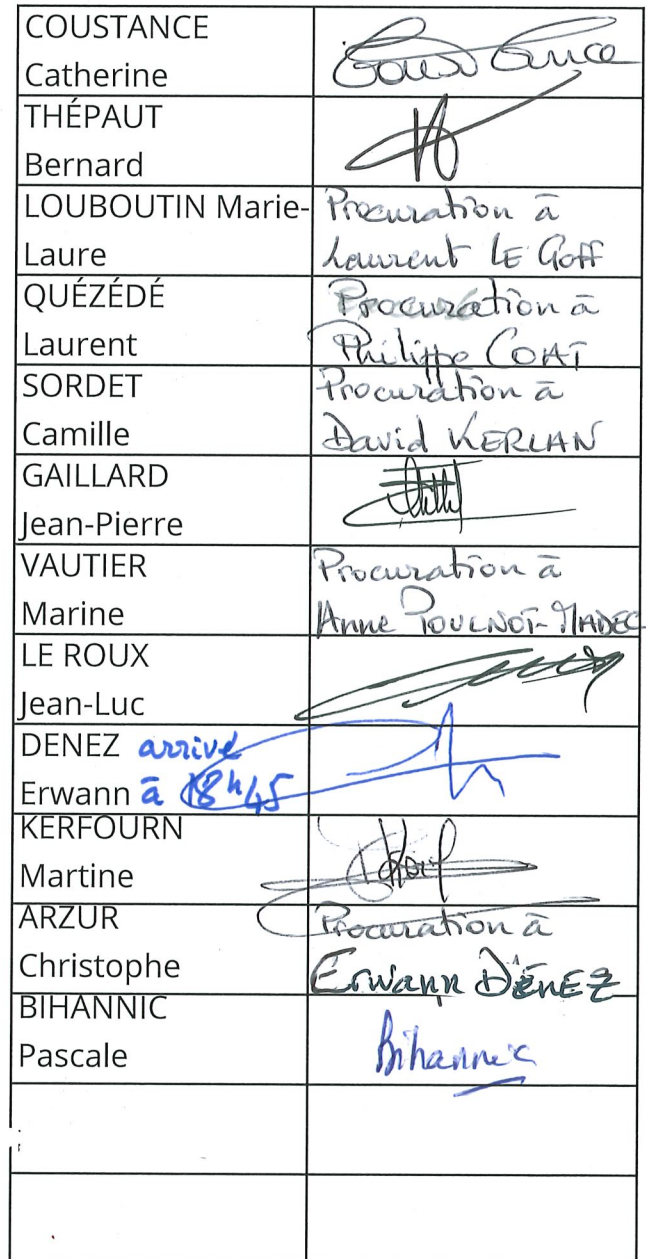 COUSTANCE
Catherine
Coustance
THÉPAUT
Bernard
LOUBOUTIN Marie-
Laure
Procuration à
Laurent LE Goff
QUÉZÉDÉ
Laurent
Procuration à
Philippe COAT
SORDET
Camille
Procuration à
David KERLAN
GAILLARD
Jean-Pierre
VAUTIER
Marine
Procuration à
Anne POULNOT-MADEC
LE ROUX
Jean-Luc
DENEZ arrivé
Erwann à 18h45
KERFOURN
Martine
ARZUR
Christophe
Procuration à
Erwann DÉNEZ
BIHANNIC
Pascale
Bihannic